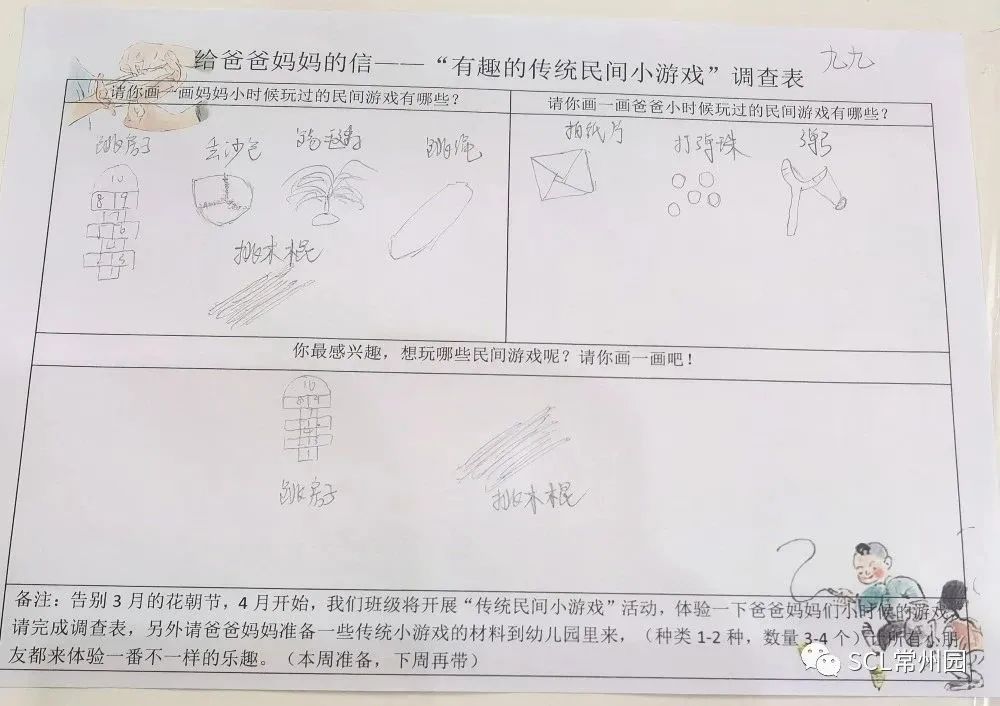 给爸爸妈妈的信——“有趣的传统民间小游戏”调查表
九九
请你画一画妈妈小时候玩过的民间游戏有哪些？
请你画一画爸爸小时候玩过的民间游戏有哪些？
跳房子 丢沙包 踢毽子 跳绳
拍纸片 打弹珠 弹弓
10
8 9
7
挑木棍
你最感兴趣，想玩哪些民间游戏呢？请你画一画吧！
10
8 9
7
跳房子
挑木棍
备注：告别3月的花朝节，4月开始，我们班级将开展“传统民间小游戏”活动，体验一下爸爸妈妈们小时候的游戏，
请完成调查表，另外请爸爸妈妈准备一些传统小游戏的材料到幼儿园里来，（种类1-2种，数量3-4个）让所有小朋
友都来体验一番不一样的乐趣。（本周准备，下周再带）
SCL常州园